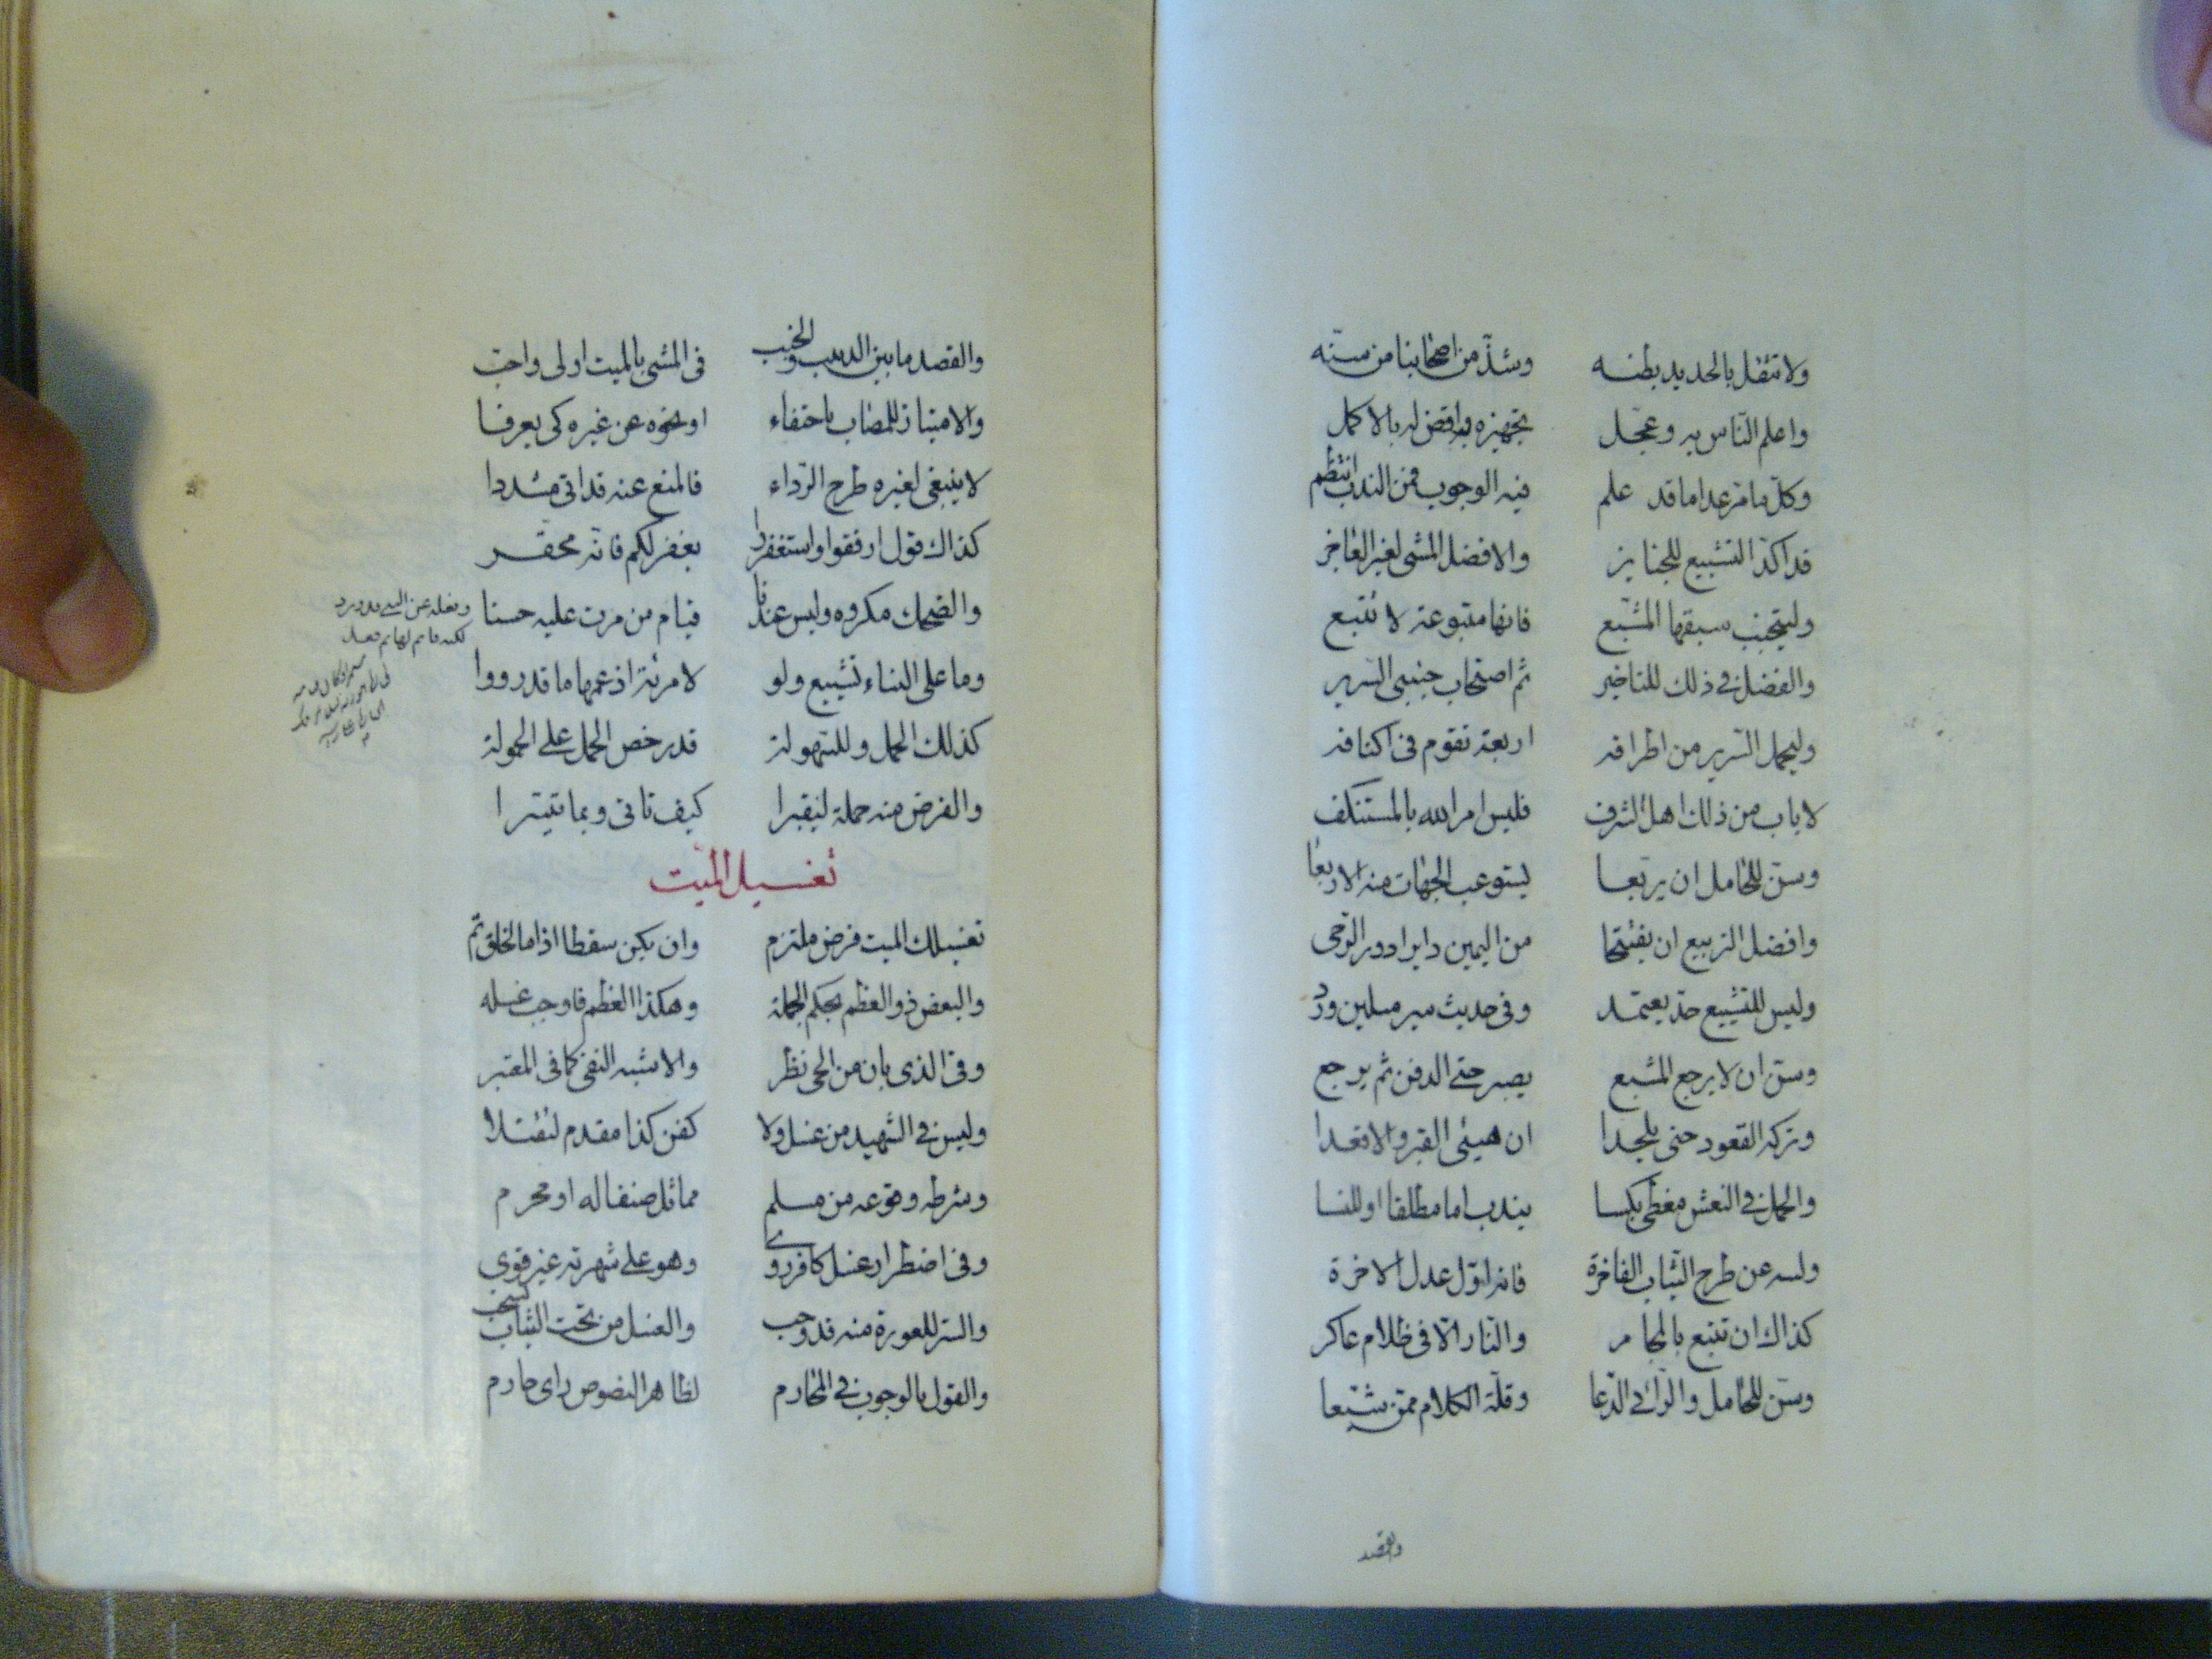 ولا تثقل بالحديد بطنه وشذ من اصحابنا من سنه
واعلم الناس به وعجل تجهيزه واقض له بالاكمل
وكل ما مر عدا ما قد علم فيه الوجوب فمن الندب انتظم
قد اكد التشييع للجنايز والافضل المشى لغير العاجز
وليتجنب سبقها المشيع فانها متبوعة لا تتبع
والفضل فى ذلك للتاخير ثم اصطحاب جنبى السرير
وليحمل السرير من اطرافه اربعة تقوم فى اكنافه
لا ياب من ذلك اهل الشرف فليس امر الله بالمستنكف
وسن للحامل ان يربعا ليستوعب الجهات منه الاربعا
وافضل التربيع ان يفتتحا من اليمين دايرا دور الرحى
وليس للتشييع حد يعتمد وفى حديث سير ميلين ورد
وسن ان لا يرجع المشيع يصبر حتى الدفن ثم يرجع
وتركه القعود حتى يلحدا ان هيئى القبر والا قعدا
والحمل فى النعش مغطى بكسا يندب اما مطلقا او للنسا
وليسه عن طرح الثياب الفاخرة فانه اول عدل الاخرة
كذاك ان تتبع بالمجامر والنار الا فى ظلام عاكر
وسن للحامل والرائى الدعا وقلة الكلام ممن شيعا
والقصد
والقصد ما بين الدبيب والخبب فى المشى بالميت اولى واحب
والامتياز للمصاب باحتفاء او نحوه عن غيره كى يعرفا
لا ينبغى لغيره طرح الرداء فالمنع عنه قد اتى مشددا
كذاك قول ارفقوا واستغفروا يغفر لكم فانه محقر
والضحك مكروه وليس عندنا قيام من مرت عليه حسنا
وما على النساء تشييع ولو لامرئة اذ عمها ما قد رووا
كذلك الحمل وللسهولة قد رخص الحمل على الحمولة
والفرض منه حمله ليقبرا كيف تاتى وبما تيسرا
تغسيل الميت
تغسيلك الميت فرض ملتزم وان يكن سقطا اذا ما الخلق تم
والبعض ذو العظم بحكم الجملة وهكذا العظم فاوجب غسله
وفى الذى بان من الحى نظر والاشبه النفى كما فى المعتبر
وليس فى الشهيد من غسل ولا كفن كذا مقدم لتقتلا
وشرطه وقوعه من مسلم مماثل صنفا له او محرم
وفى اضطرار غسل كافر روى وهو على شهرته غير قوى
والستر للعورة منه قد وجب والغسل من تحت الثياب يستحب
والقول بالوجوب فى المحارم لظاهر النصوص راى حازم